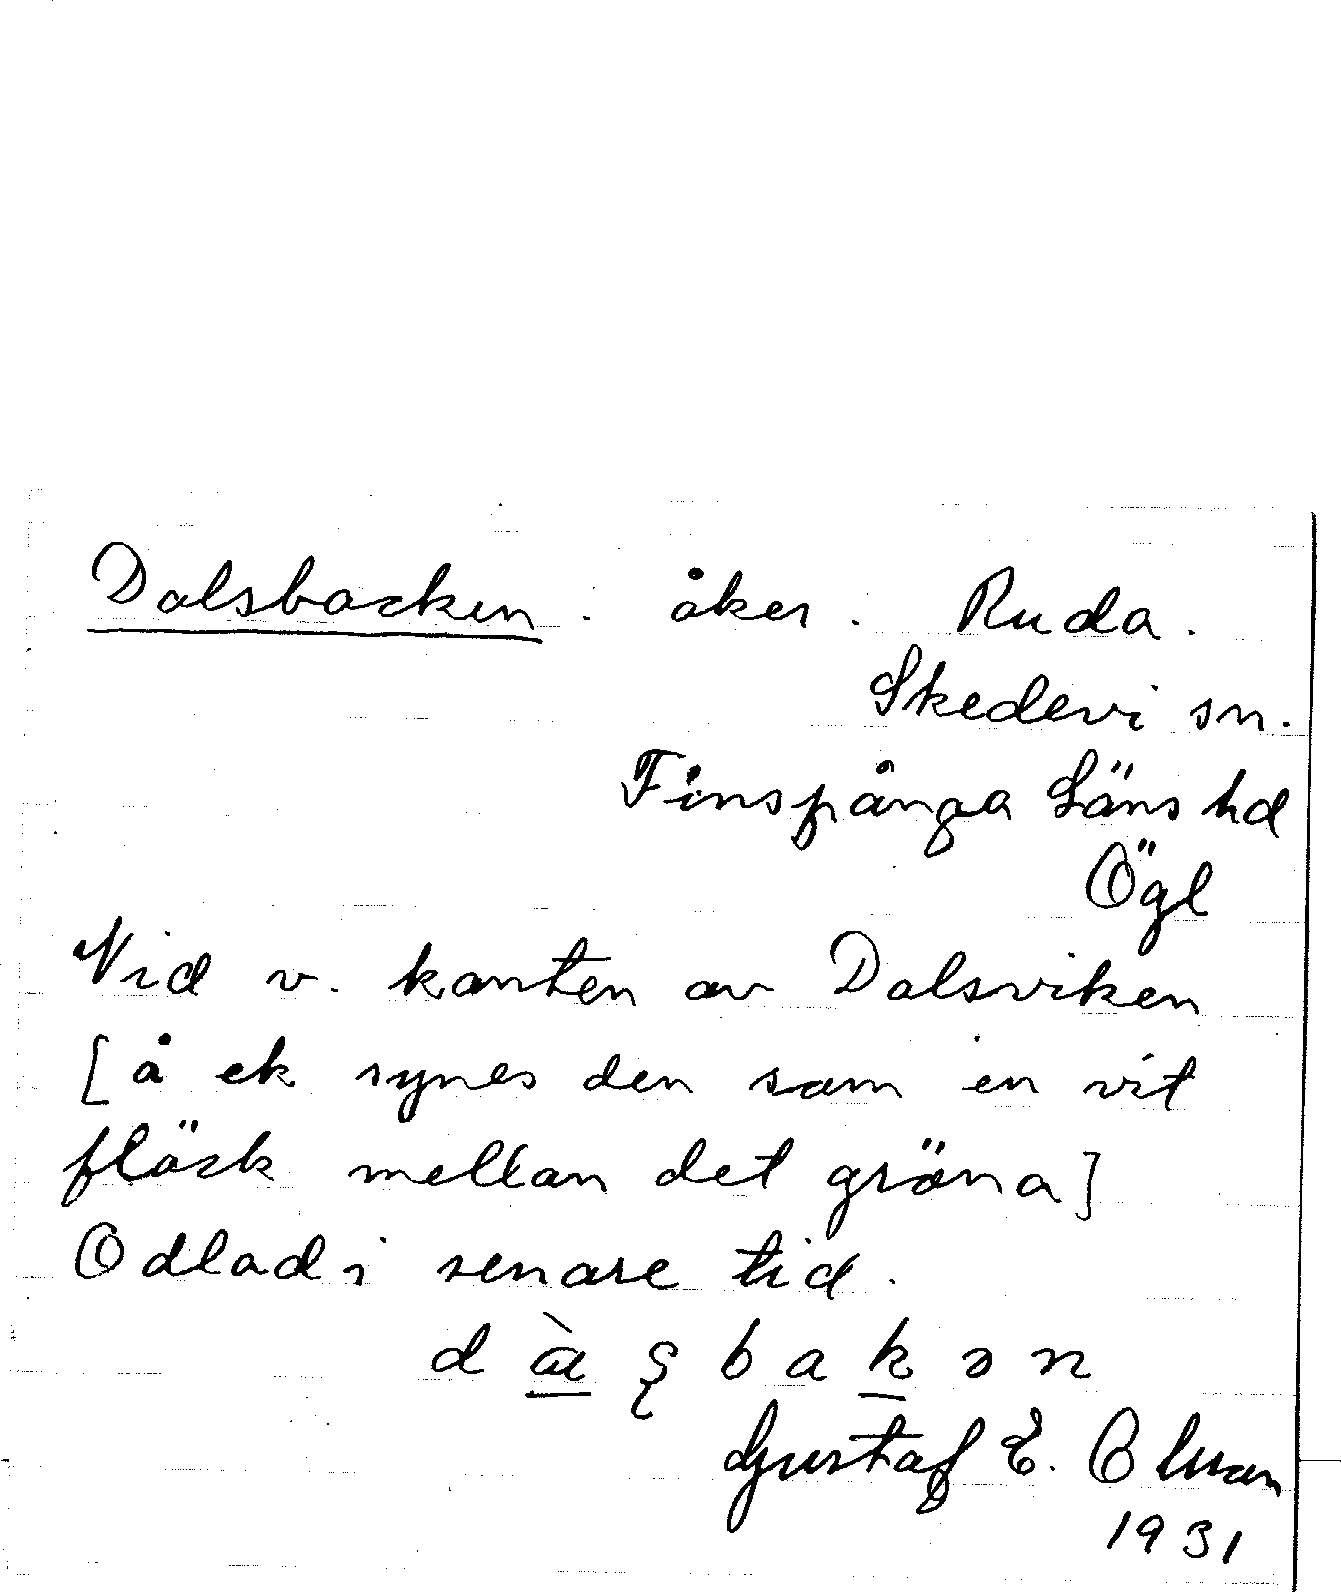 Dalsbacken. åker. Ruda.
Skedevi sn.
Finspånga Läns hd
Ögl
Vid v. kanten av Dalsviken
[å ek synes den som en vit
fläck mellan det gröna]
Odlad i senare tid.
Gustaf E.
1931